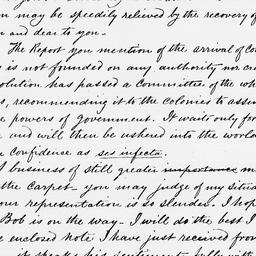 may be speedily relieved by the recovery of
and dear to you.
The Report you mention of the arrival of Co
is not founded on any authority nor cre
olution has passed a committee of the who
, recommending it to the colonies to assum
powers of government. It waits only for
and will then be ushered into the world
confidence as res infecta.
business of still greater importance m
the Carpet - you may judge of my situa
our representation is so slender. I hop
Bob is on the way - I will do the best I
enclosed Note I have just received from
it speaks his sentiments fully with